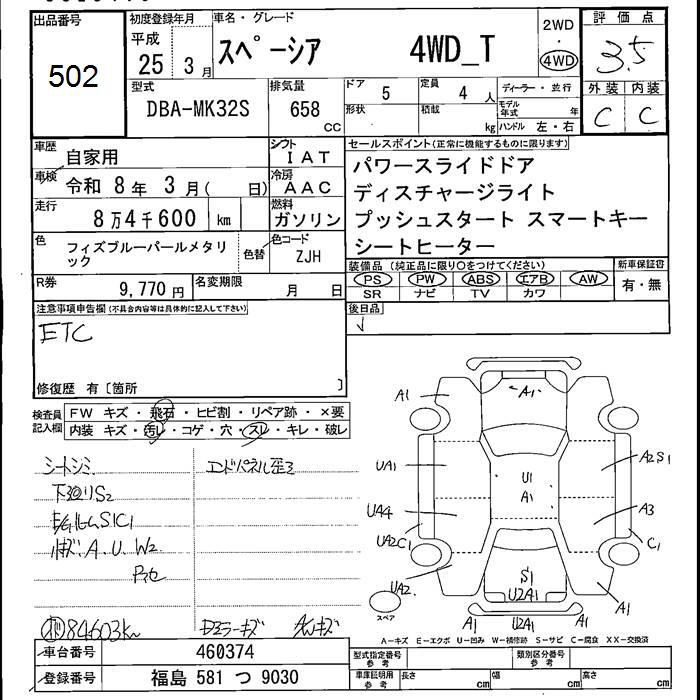 出品番号
502
初度登録年月
平成
25 3月
車名・グレード
スペーシア 4WD_T
2WD
・
4WD
評価点
3.5
外装 内装
C C
型式
DBA-MK32S
排気量
658
cc
ドア 5
定員 4人
形状
積載 kg
ディーラー・並行
モデル年式 年
ハンドル 左・右
車歴 自家用
シフト
IAT
車検 令和 8年 3月( 日)
冷房
AAC
走行 8万4千600 km
燃料
ガソリン
色 フィズブルーパールメタリック
色替
色コード
ZJH
R券 9,770円
名変期限 月 日
セールスポイント(正常に機能するものに限ります)
パワースライドドア
ディスチャージライト
プッシュスタート スマートキー
シートヒーター
装備品 (純正品に限り○をつけてください)
PS PW ABS エアB AW
SR ナビ TV カワ
新車保証書
有・無
後日品
注意事項申告欄(不具合内容等は具体的に記入して下さい)
ETC
修復歴 有〔箇所 〕
検査員記入欄
FW キズ・飛石・ヒビ割・リペア跡・×要
内装 キズ・汚レ・コゲ・穴・スレ・キレ・破レ
シートシミ
エンドパネル歪ミ
下廻りS2
A.U.W2
84603km
ドアミラーキズ
AWキズ
A1
A1
UA1
A2S1
U1
A1
UA4
A3
UA2C1
C1
UA2
S1
U2A1
A1
スペア
A1
U2A1
A1
A-キズ E-エクボ U-凹み W-補修跡 S-サビ C-腐食 XX-交換済
車台番号 460374
登録番号 福島 581 つ 9030
型式指定番号
参考
類別区分番号
参考
車庫証明用
参考
長さ cm
幅 cm
高さ cm